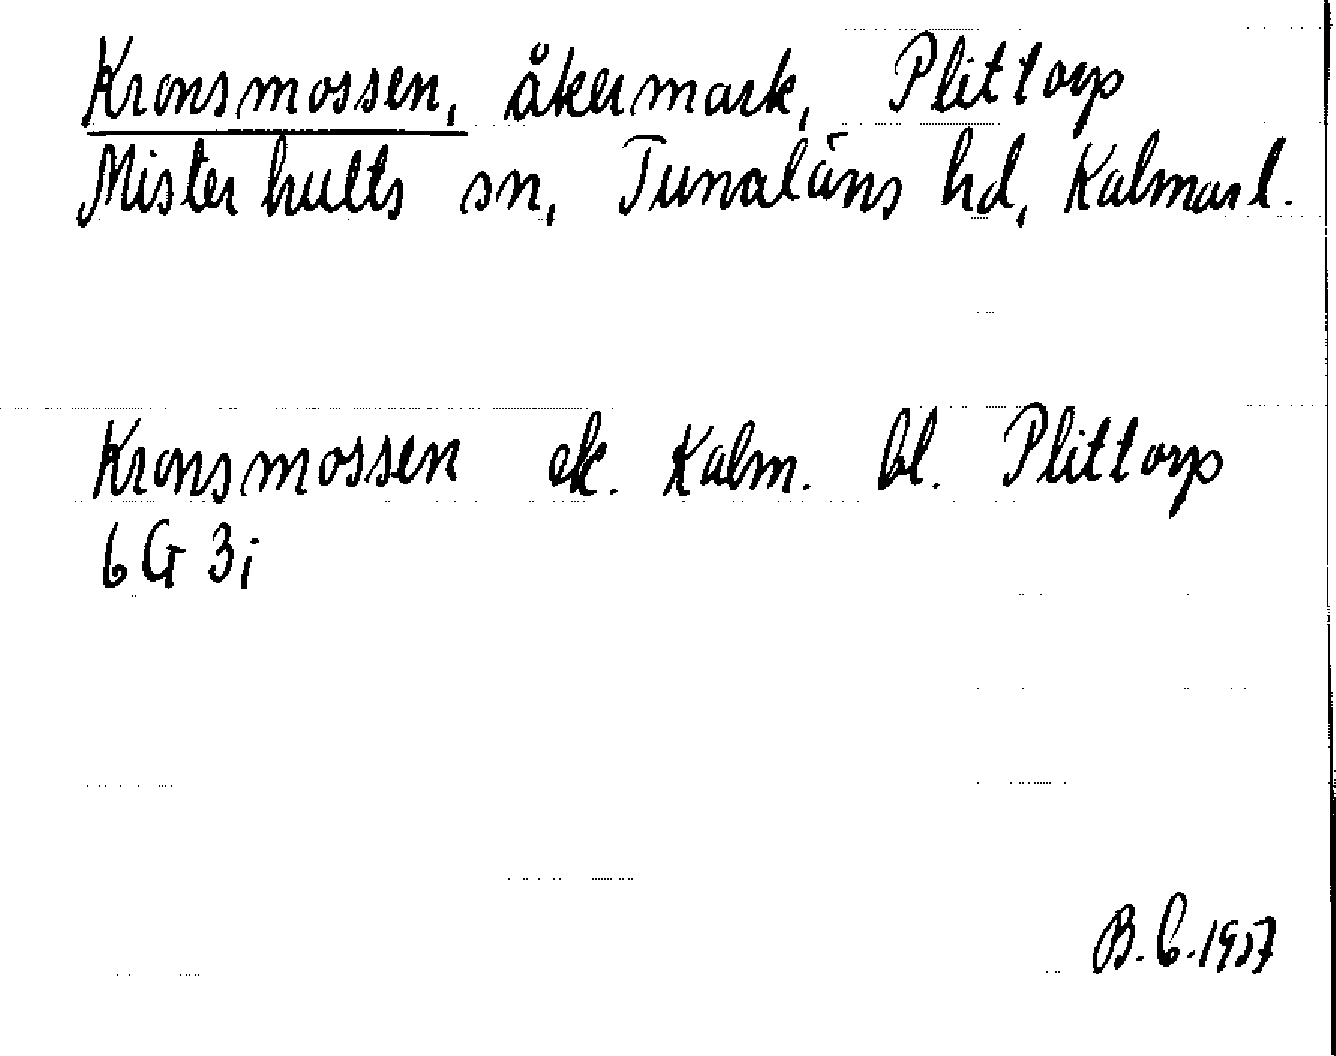 Kronsmossen, åkermark, Plittorp
Misterhults sn, Tunaläns hd, Kalmar l.
Kronsmossen ek. Kalm. bl. Plittorp
6G 3i
B.C. 1957